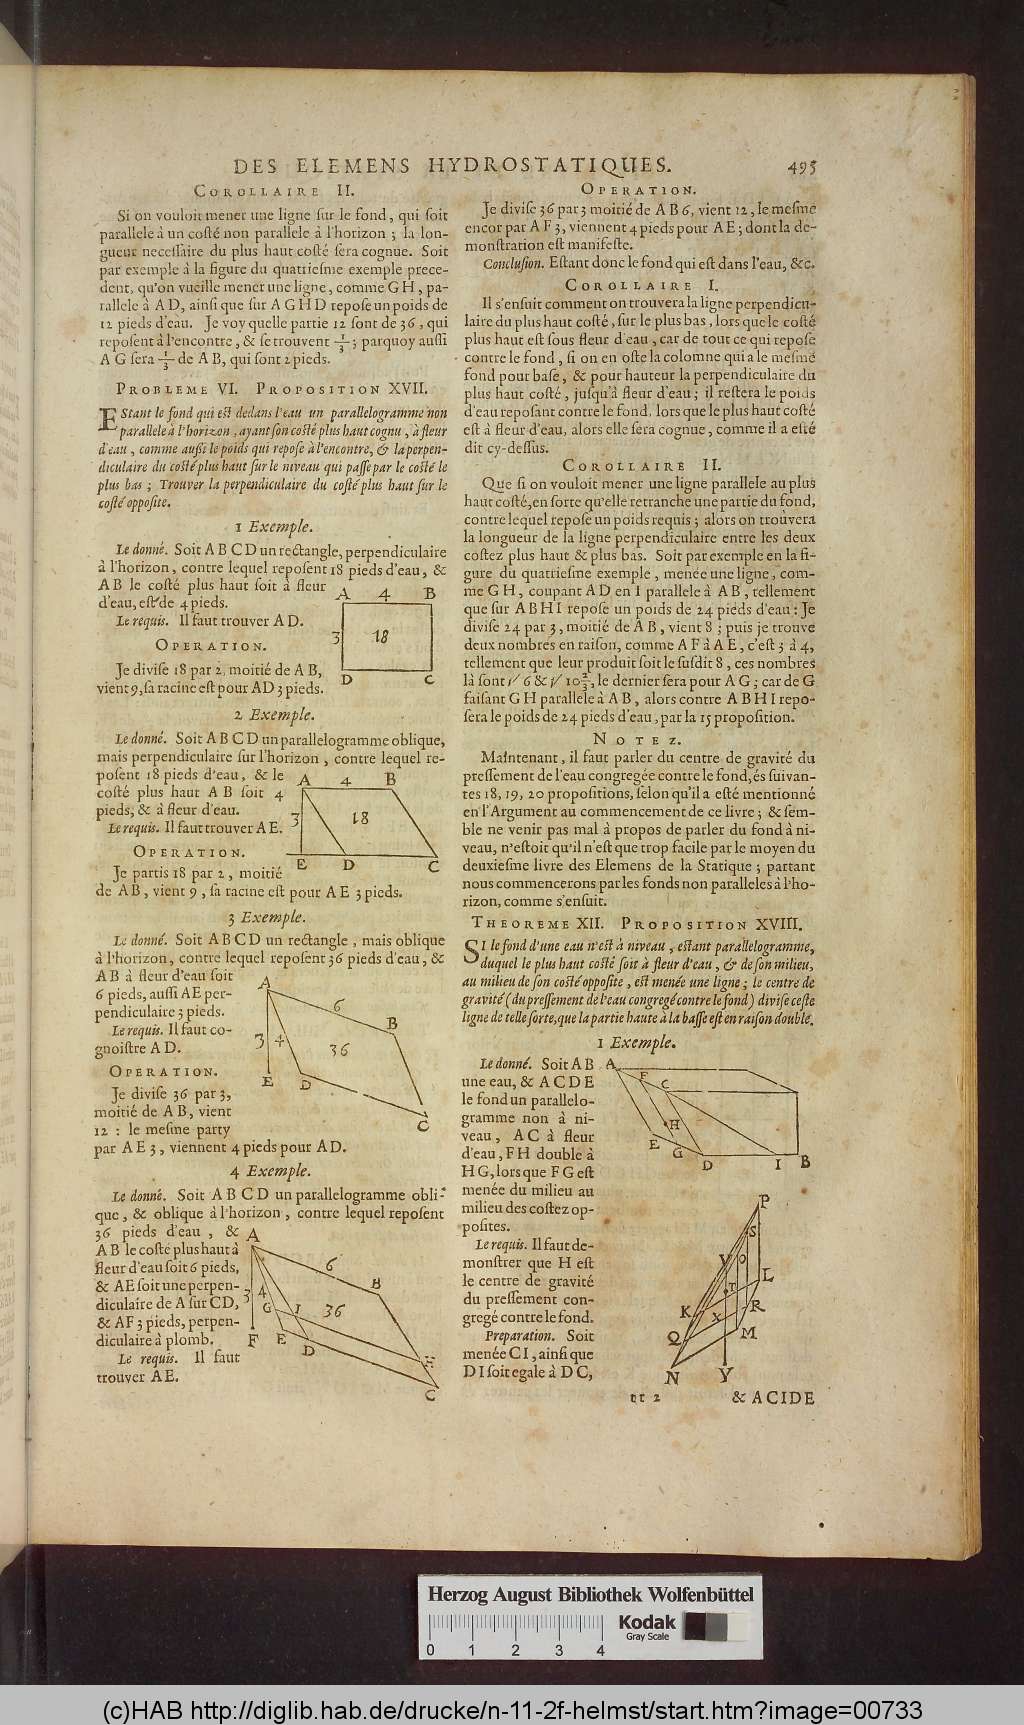 DES ELEMENS HYDROSTATIQUES. 495
COROLLAIRE II.
Si on vouloit mener une ligne ſur le fond, qui ſoit
parallele à un coſté non parallele à l'horizon ; la lon-
gueur neceſſaire du plus haut coſté ſera cognue. Soit
par exemple à la figure du quattrieſme exemple prece-
dent, qu'on vueille mener une ligne, comme G H, pa-
rallele à A D, ainſi que ſur A G H D repoſe un poids de
12 pieds d'eau. Je voy quelle partie 12 ſont de 36, qui
repoſent à l'encontre, & ſe trouvent 1/3 ; parquoy auſſi
A G ſera 1/3 de A B, qui ſont 2 pieds.
PROBLEME VI. PROPOSITION XVII.
EStant le fond qui eſt dedans l'eau un parallelogramme non
parallele à l'horizon, ayant ſon coſté plus haut cognu, à fleur
d'eau, comme auſſi le poids qui repoſe à l'encontre, & la perpen-
diculaire du coſté plus haut ſur le niveau qui paſſe par le coſté le
plus bas ; Trouver la perpendiculaire du coſté plus haut ſur le
coſté oppoſite.
1 Exemple.
Le donné. Soit A B C D un rectangle, perpendiculaire
à l'horizon, contre lequel repoſent 18 pieds d'eau, &
A B le coſté plus haut ſoit à fleur
d'eau, eſt de 4 pieds.
Le requis. Il faut trouver A D.
OPERATION.
Je diviſe 18 par 2, moitié de A B,
vient 9, ſa racine eſt pour A D 3 pieds.
A 4 B
3 18
D C
2 Exemple.
Le donné. Soit A B C D un parallelogramme oblique,
mais perpendiculaire ſur l'horizon, contre lequel re-
poſent 18 pieds d'eau, & le
coſté plus haut A B ſoit 4
pieds, & à fleur d'eau.
Le requis. Il faut trouver A E.
OPERATION.
Je partis 18 par 2, moitié
de A B, vient 9, ſa racine eſt pour A E 3 pieds.
A 4 B
3 18
E D C
3 Exemple.
Le donné. Soit A B C D un rectangle, mais oblique
à l'horizon, contre lequel repoſent 36 pieds d'eau, &
A B à fleur d'eau ſoit
6 pieds, auſſi A E per-
pendiculaire 3 pieds.
Le requis. Il faut co-
gnoiſtre A D.
OPERATION.
Je diviſe 36 par 3,
moitié de A B, vient
12 : le meſme party
par A E 3, viennent 4 pieds pour A D.
A
6
B
3 4 36
E D
C
4 Exemple.
Le donné. Soit A B C D un parallelogramme obli-
que, & oblique à l'horizon, contre lequel repoſent
36 pieds d'eau, &
A B le coſté plus haut à
fleur d'eau ſoit 6 pieds,
& A E ſoit une perpen-
diculaire de A ſur C D,
& A F 3 pieds, perpen-
diculaire à plomb.
Le requis. Il faut
trouver A E.
A
6
B
3 4
G I 36
F E D
H
C
OPERATION.
Je diviſe 36 par 3 moitié de A B 6, vient 12, le meſme
encor par A F 3, viennent 4 pieds pour A E ; dont la de-
monſtration eſt manifeſte.
Concluſion. Eſtant donc le fond qui eſt dans l'eau, &c.
COROLLAIRE I.
Il s'enſuit comment on trouvera la ligne perpendicu-
laire du plus haut coſté, ſur le plus bas, lors que le coſté
plus haut eſt ſous fleur d'eau, car de tout ce qui repoſe
contre le fond, ſi on en oſte la colomne qui a le meſme
fond pour baſe, & pour hauteur la perpendiculaire du
plus haut coſté, juſqu'à fleur d'eau ; il reſtera le poids
d'eau repoſant contre le fond, lors que le plus haut coſté
eſt à fleur d'eau, alors elle ſera cognue, comme il a eſté
dit cy-deſſus.
COROLLAIRE II.
Que ſi on vouloit mener une ligne parallele au plus
haut coſté, en ſorte qu'elle retranche une partie du fond,
contre lequel repoſe un poids requis ; alors on trouvera
la longueur de la ligne perpendiculaire entre les deux
coſtez plus haut & plus bas. Soit par exemple en la fi-
gure du quatrieſme exemple, menée une ligne, com-
me G H, coupant A D en I parallele à A B, tellement
que ſur A B H I repoſe un poids de 24 pieds d'eau : Je
diviſe 24 par 3, moitié de A B, vient 8 ; puis je trouve
deux nombres en raiſon, comme A F à A E, c'eſt 3 à 4,
tellement que leur produit ſoit le ſuſdit 8, ces nombres
là ſont √ 6 & √ 10 2/3, le dernier ſera pour A G ; car de G
faiſant G H parallele à A B, alors contre A B H I repo-
ſera le poids de 24 pieds d'eau, par la 15 propoſition.
NOTEZ.
Maintenant, il faut parler du centre de gravité du
preſſement de l'eau congregée contre le fond, és ſuivan-
tes 18, 19, 20 propoſitions, ſelon qu'il a eſté mentionné
en l'Argument au commencement de ce livre ; & ſem-
ble ne venir pas mal à propos de parler du fond à ni-
veau, n'eſtoit qu'il n'eſt que trop facile par le moyen du
deuxieſme livre des Elemens de la Statique ; partant
nous commencerons par les fonds non paralleles à l'ho-
rizon, comme s'enſuit.
THEOREME XII. PROPOSITION XVIII.
SI le fond d'une eau n'eſt à niveau, eſtant parallelogramme,
duquel le plus haut coſté ſoit à fleur d'eau, & de ſon milieu,
au milieu de ſon coſté oppoſite, eſt menée une ligne ; le centre de
gravité (du preſſement de l'eau congregé contre le fond) diviſe ceſte
ligne de telle ſorte, que la partie haute à la baſſe eſt en raiſon double.
1 Exemple.
Le donné. Soit A B
une eau, & A C D E
le fond un parallelo-
gramme non à ni-
veau, A C à fleur
d'eau, F H double à
H G, lors que F G eſt
menée du milieu au
milieu des coſtez op-
poſites.
Le requis. Il faut de-
monſtrer que H eſt
le centre de gravité
du preſſement con-
gregé contre le fond.
Preparation. Soit
menée C I, ainſi que
D I ſoit egale à D C,
A F C
H
E G D I B
P
S
V O
T L
K X R
Q M
N Y
tt 2 & ACIDE
Herzog August Bibliothek Wolfenbüttel
0 1 2 3 4
Kodak
Gray Scale
(c)HAB http://diglib.hab.de/drucke/n-11-2f-helmst/start.htm?image=00733